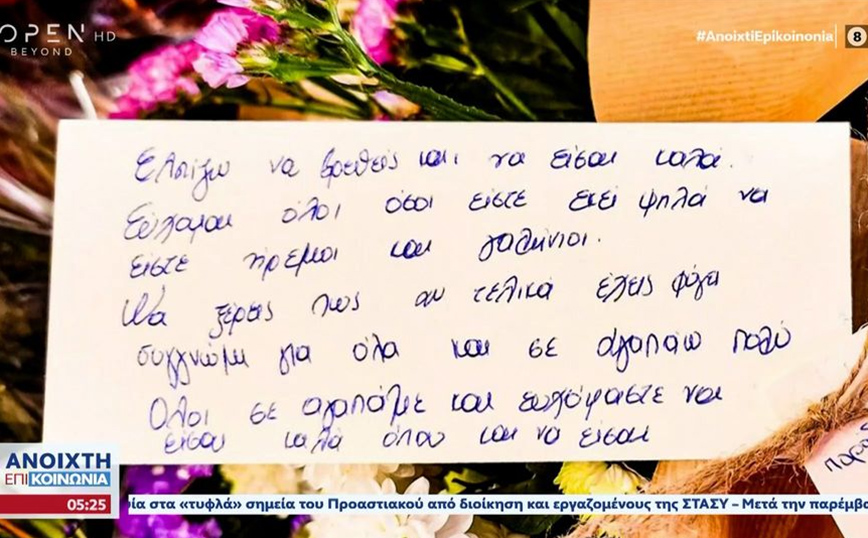 OPEN HD
BEYOND
#AnoixtiEpikoinonia
8
Ελπίζω να βρεθείς και να είσαι καλά.
Εύχομαι όλοι όσοι είστε εκεί ψηλά να
είστε ήρεμοι και γαλήνιοι.
Να ξέρεις πως αν τελικά έχεις φύγει
συγγνώμη για όλα και σε αγαπάω πολύ
Όλοι σε αγαπάμε και ευχόμαστε να
είσαι καλά όπου και να είσαι
ΑΝΟΙΧΤΗ
ΕΠΙΚΟΙΝΩΝΙΑ
05:25
στα «τυφλά» σημεία του Προαστιακού από διοίκηση και εργαζομένους της ΣΤΑΣΥ – Μετά την